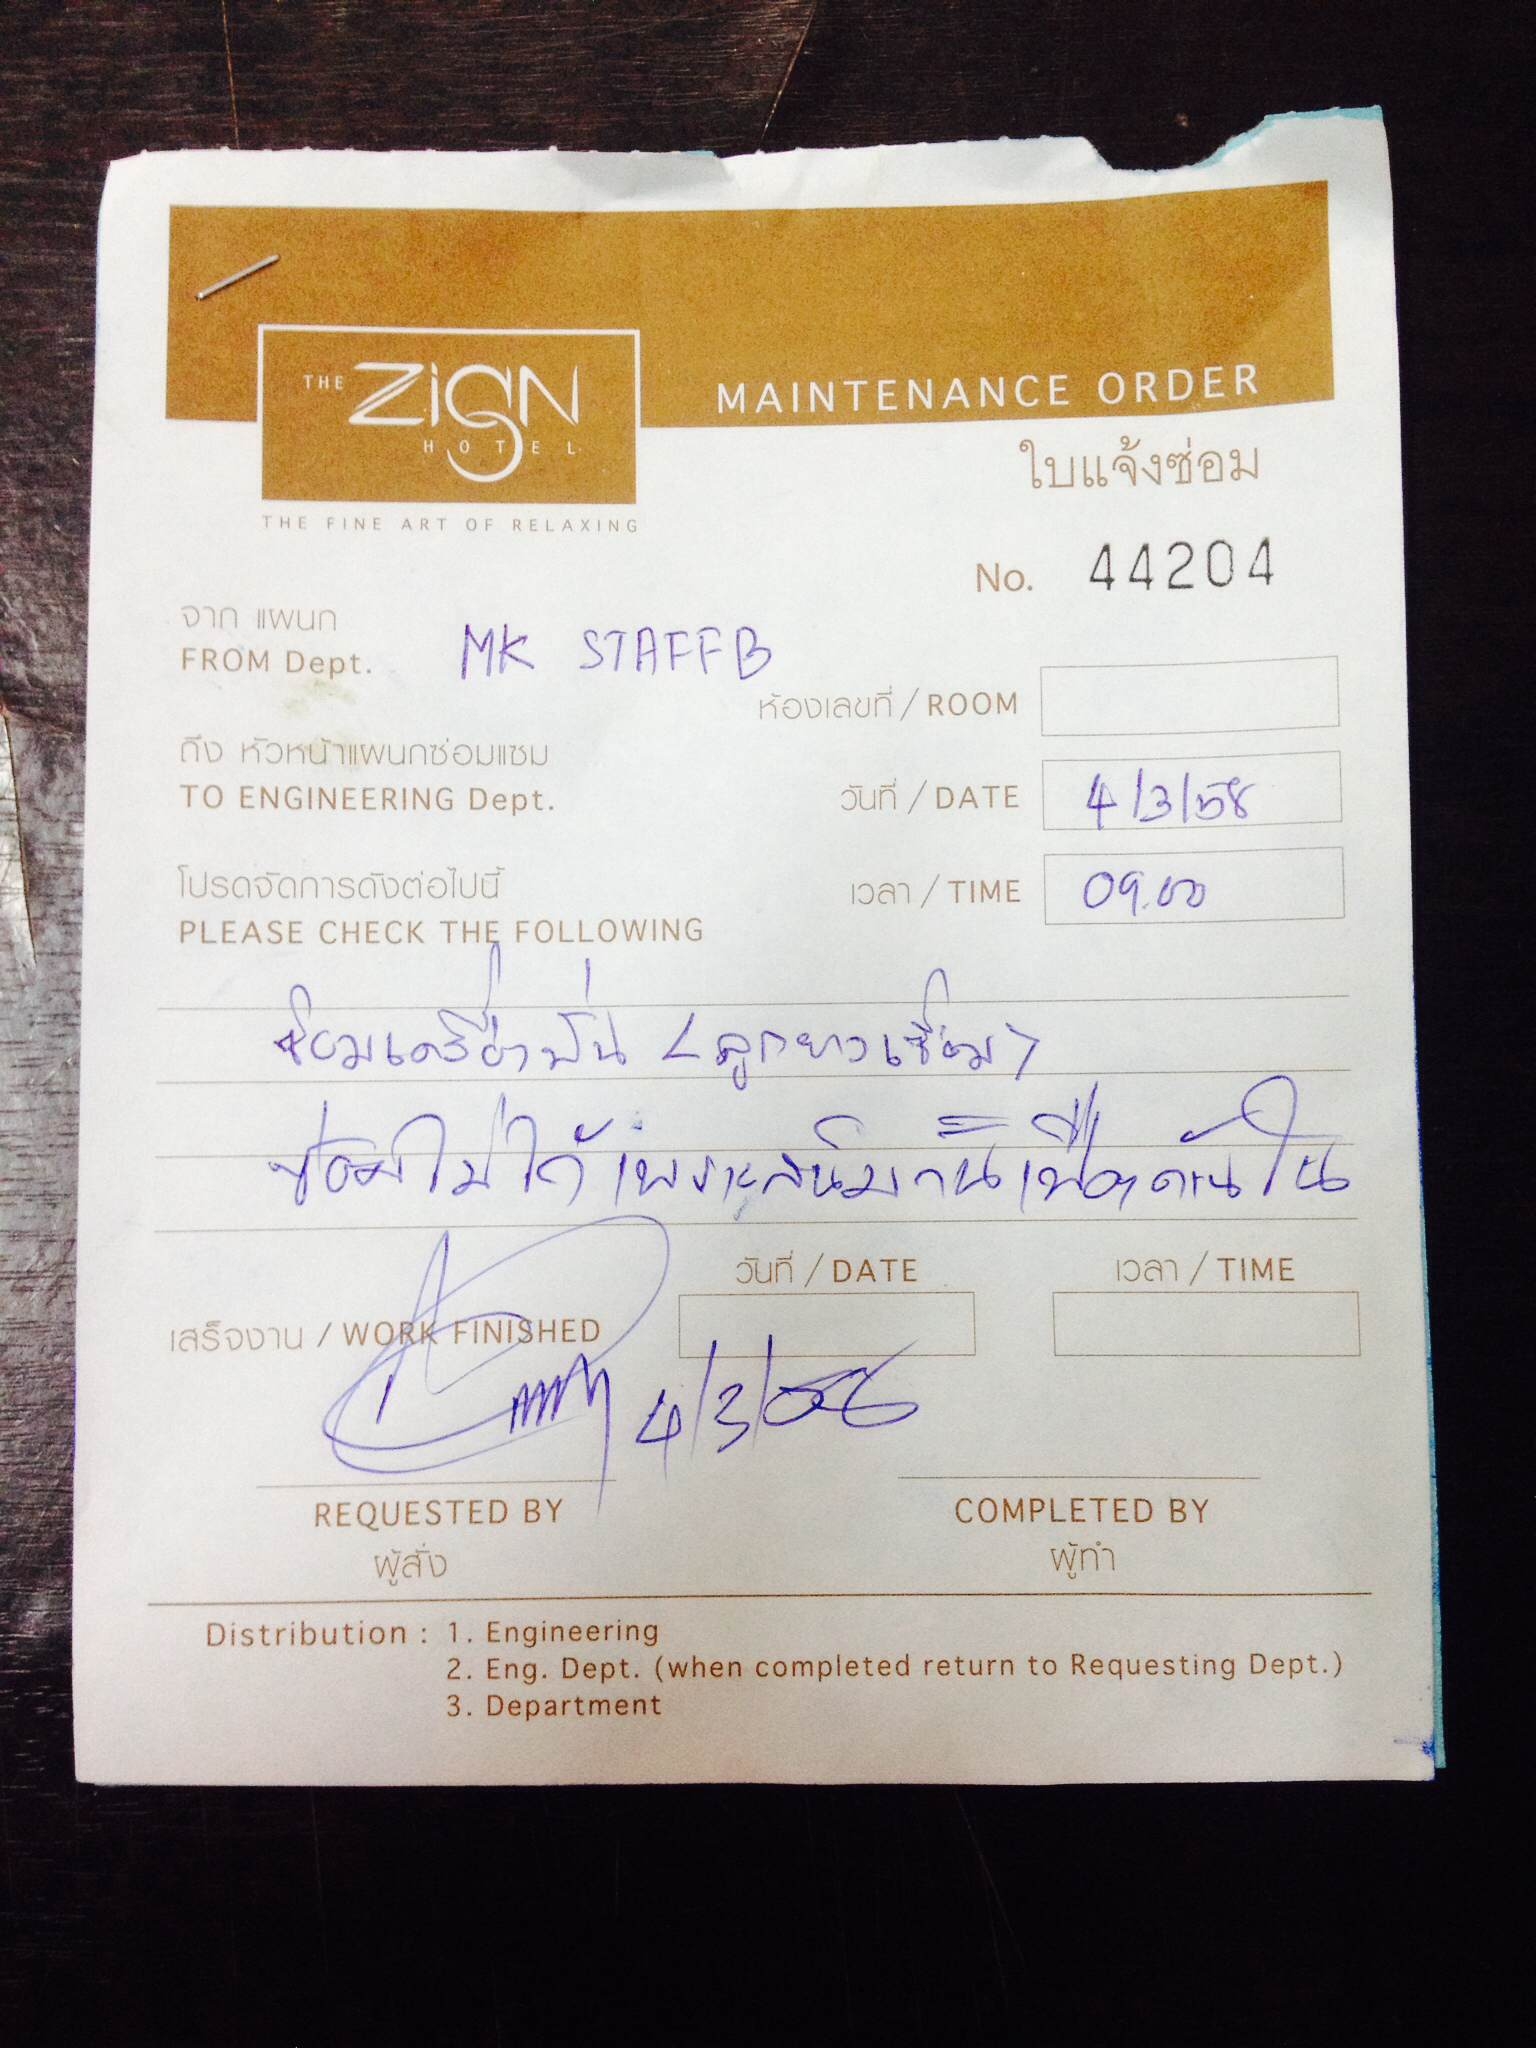 THE ZIGN
HOTEL
THE FINE ART OF RELAXING
MAINTENANCE ORDER
ใบแจ้งซ่อม
No. 44204
จาก แผนก
FROM Dept. MK STAFF B
ห้องเลขที่ / ROOM
ถึง หัวหน้าแผนกซ่อมแซม
TO ENGINEERING Dept.
วันที่ / DATE 4/3/58
โปรดจัดการดังต่อไปนี้
PLEASE CHECK THE FOLLOWING
เวลา / TIME 09.00
ซ่อมเครื่องปั่น <ลูกยางเชื่อม>
ซ่อมไม่ได้เพราะสนิมกินเฟืองด้านใน
วันที่ / DATE
เวลา / TIME
เสร็จงาน / WORK FINISHED
4/3/58
REQUESTED BY
ผู้สั่ง
COMPLETED BY
ผู้ทำ
Distribution : 1. Engineering
2. Eng. Dept. (when completed return to Requesting Dept.)
3. Department